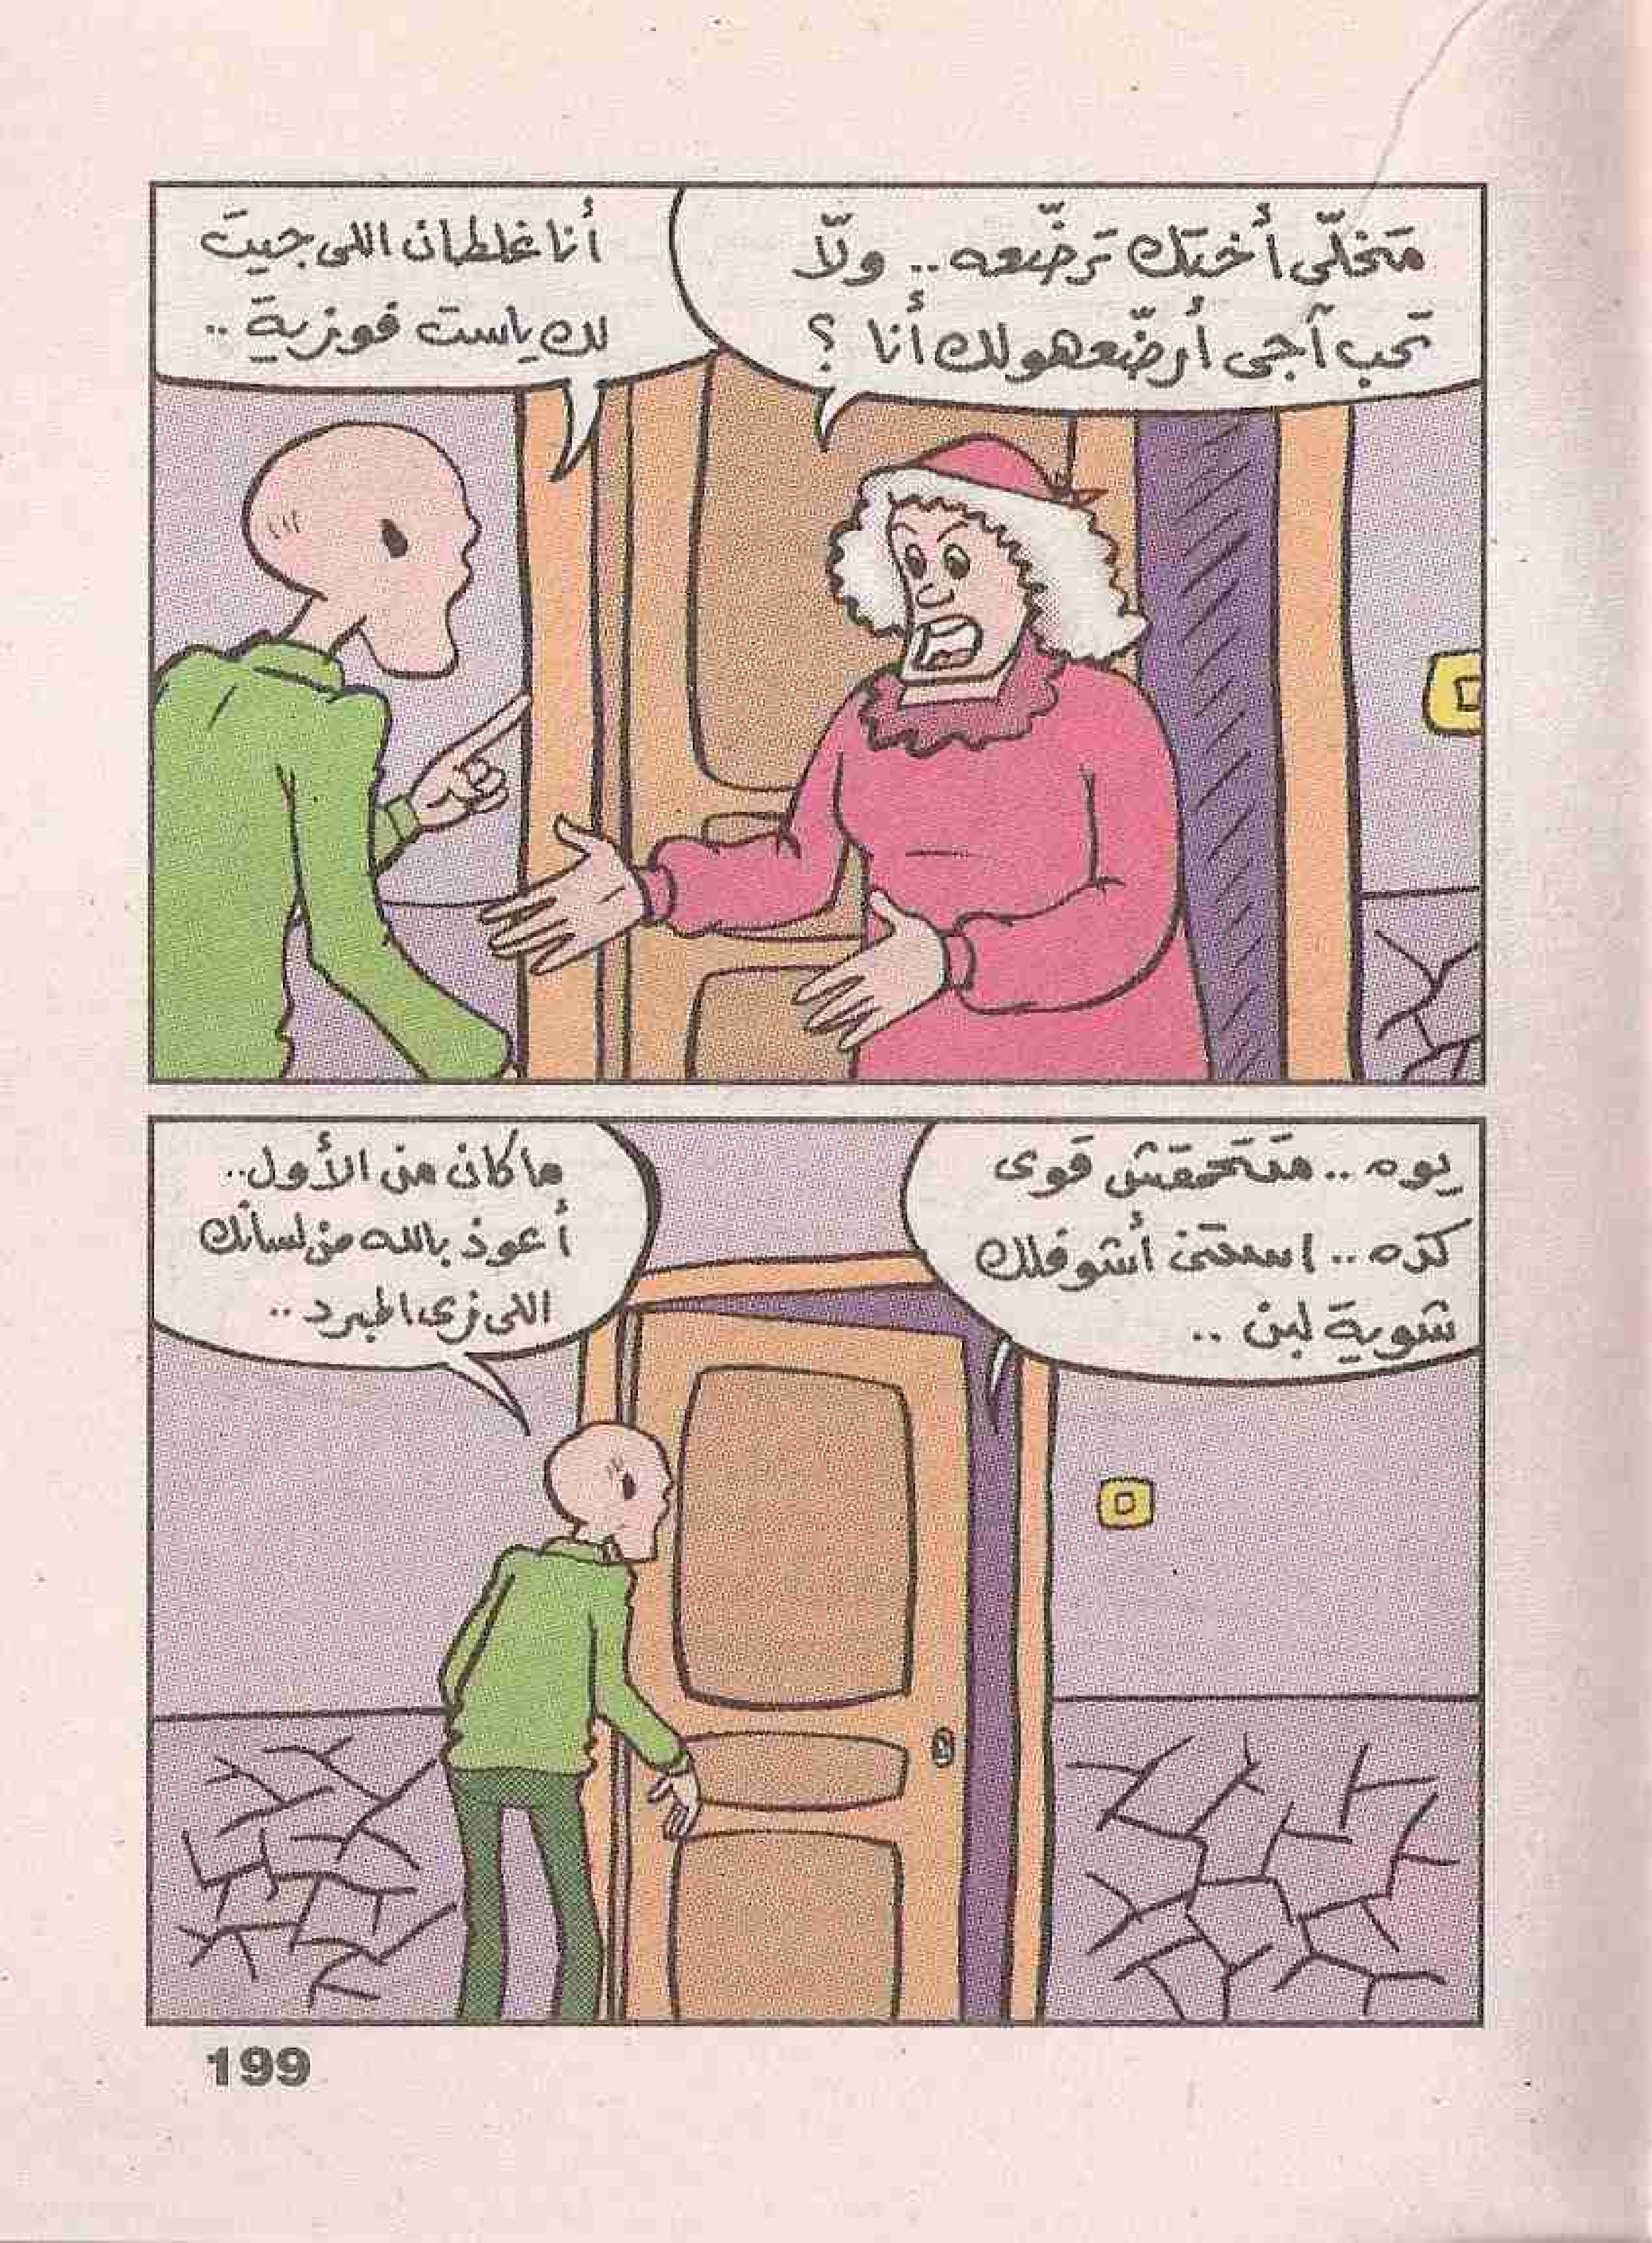 متخلّى أختك ترضّعه.. ولّا
تحب آجى أرضّعهولك أنا ؟
أنا غلطان اللى جيت
لك ياست فوزية..
يوه.. متتحمقش قوى
كده.. استنى أشوفلك
شوية لبن ..
ما كان من الأول..
أعوذ بالله من لسانك
اللى زى المبرد..
199